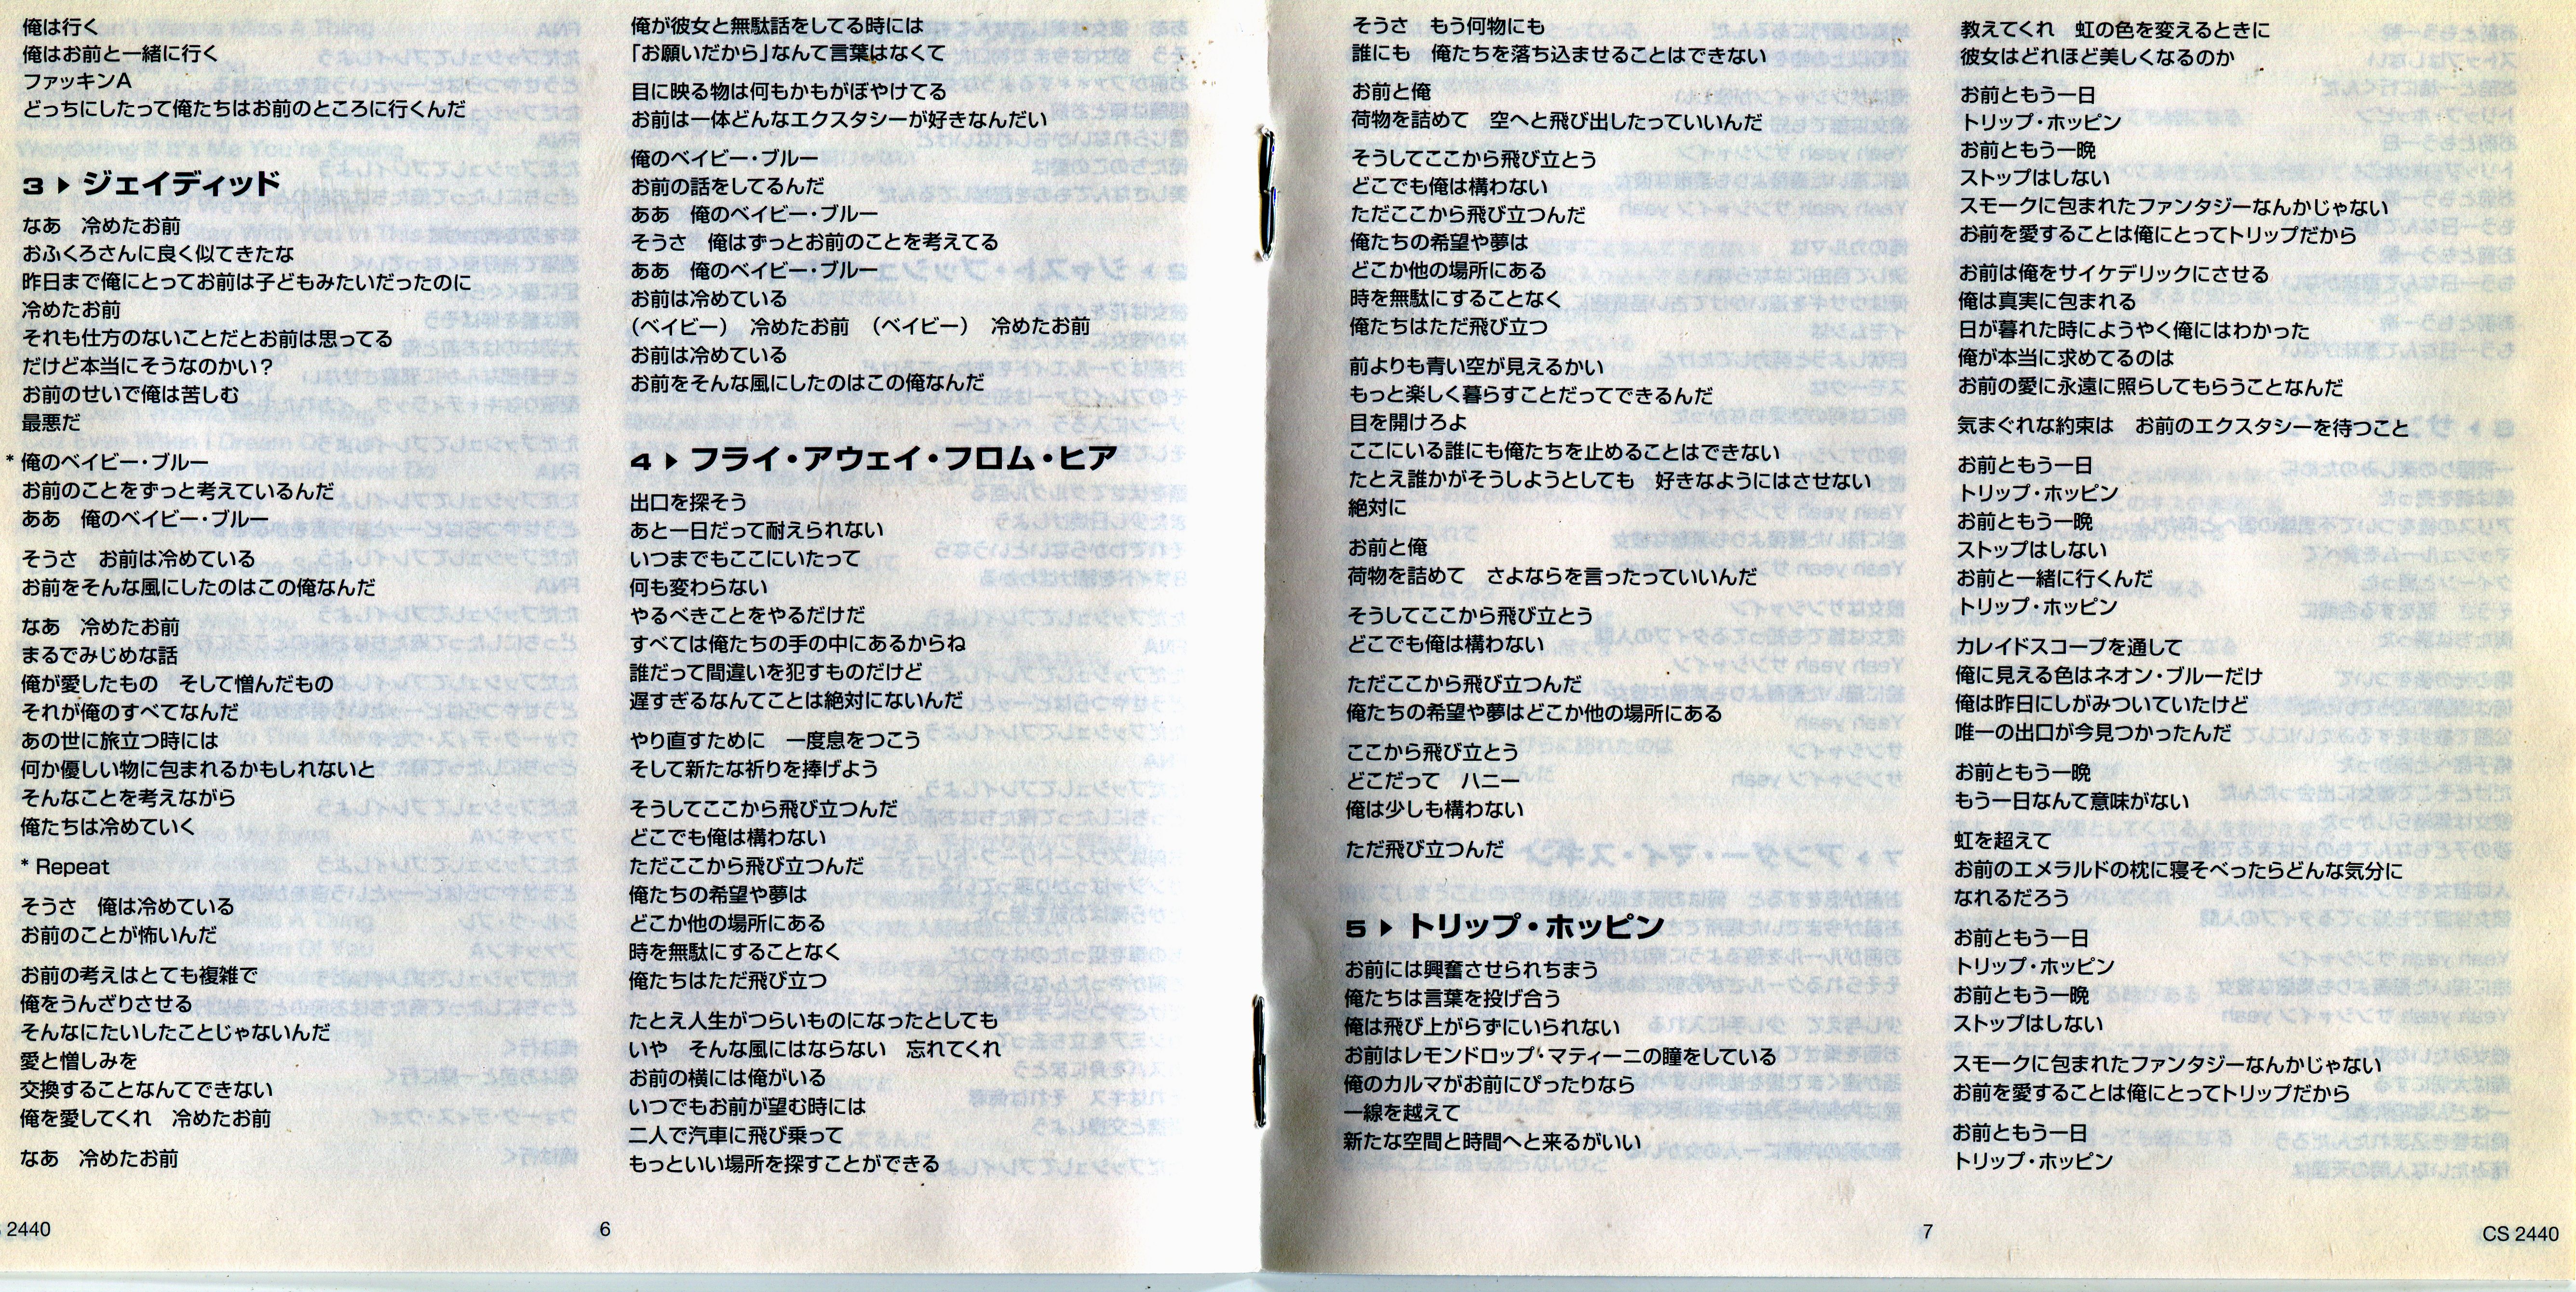 俺は行く
俺はお前と一緒に行く
ファッキンA
どっちにしたって俺たちはお前のところに行くんだ
3 ▶ ジェイディッド
なあ　冷めたお前
おふくろさんに良く似てきたな
昨日まで俺にとってお前は子どもみたいだったのに
冷めたお前
それも仕方のないことだとお前は思ってる
だけど本当にそうなのかい？
お前のせいで俺は苦しむ
最悪だ
* 俺のベイビー・ブルー
お前のことをずっと考えているんだ
ああ　俺のベイビー・ブルー
そうさ　お前は冷めている
お前をそんな風にしたのはこの俺なんだ
なあ　冷めたお前
まるでみじめな話
俺が愛したもの　そして憎んだもの
それが俺のすべてなんだ
あの世に旅立つ時には
何か優しい物に包まれるかもしれないと
そんなことを考えながら
俺たちは冷めていく
* Repeat
そうさ　俺は冷めている
お前のことが怖いんだ
お前の考えはとても複雑で
俺をうんざりさせる
そんなにたいしたことじゃないんだ
愛と憎しみを
交換することなんてできない
俺を愛してくれ　冷めたお前
なあ　冷めたお前
俺が彼女と無駄話をしてる時には
「お願いだから」なんて言葉はなくて
目に映る物は何もかもがぼやけてる
お前は一体どんなエクスタシーが好きなんだい
俺のベイビー・ブルー
お前の話をしてるんだ
ああ　俺のベイビー・ブルー
そうさ　俺はずっとお前のことを考えてる
ああ　俺のベイビー・ブルー
お前は冷めている
（ベイビー）　冷めたお前　（ベイビー）　冷めたお前
お前は冷めている
お前をそんな風にしたのはこの俺なんだ
4 ▶ フライ・アウェイ・フロム・ヒア
出口を探そう
あと一日だって耐えられない
いつまでもここにいたって
何も変わらない
やるべきことをやるだけだ
すべては俺たちの手の中にあるからね
誰だって間違いを犯すものだけど
遅すぎるなんてことは絶対にないんだ
やり直すために　一度息をつこう
そして新たな祈りを捧げよう
そうしてここから飛び立つんだ
どこでも俺は構わない
ただここから飛び立つんだ
俺たちの希望や夢は
どこか他の場所にある
時を無駄にすることなく
俺たちはただ飛び立つ
たとえ人生がつらいものになったとしても
いや　そんな風にはならない　忘れてくれ
お前の横には俺がいる
いつでもお前が望む時には
二人で汽車に飛び乗って
もっといい場所を探すことができる
2440
6
そうさ　もう何物にも
誰にも　俺たちを落ち込ませることはできない
お前と俺
荷物を詰めて　空へと飛び出したっていいんだ
そうしてここから飛び立とう
どこでも俺は構わない
ただここから飛び立つんだ
俺たちの希望や夢は
どこか他の場所にある
時を無駄にすることなく
俺たちはただ飛び立つ
前よりも青い空が見えるかい
もっと楽しく暮らすことだってできるんだ
目を開けろよ
ここにいる誰にも俺たちを止めることはできない
たとえ誰かがそうしようとしても　好きなようにはさせない
絶対に
お前と俺
荷物を詰めて　さよならを言ったっていいんだ
そうしてここから飛び立とう
どこでも俺は構わない
ただここから飛び立つんだ
俺たちの希望や夢はどこか他の場所にある
ここから飛び立とう
どこだって　ハニー
俺は少しも構わない
ただ飛び立つんだ
5 ▶ トリップ・ホッピン
お前には興奮させられちまう
俺たちは言葉を投げ合う
俺は飛び上がらずにいられない
お前はレモンドロップ・マティーニの瞳をしている
俺のカルマがお前にぴったりなら
一線を越えて
新たな空間と時間へと来るがいい
教えてくれ　虹の色を変えるときに
彼女はどれほど美しくなるのか
お前ともう一日
トリップ・ホッピン
お前ともう一晩
ストップはしない
スモークに包まれたファンタジーなんかじゃない
お前を愛することは俺にとってトリップだから
お前は俺をサイケデリックにさせる
俺は真実に包まれる
日が暮れた時にようやく俺にはわかった
俺が本当に求めてるのは
お前の愛に永遠に照らしてもらうことなんだ
気まぐれな約束は　お前のエクスタシーを待つこと
お前ともう一日
トリップ・ホッピン
お前ともう一晩
ストップはしない
お前と一緒に行くんだ
トリップ・ホッピン
カレイドスコープを通して
俺に見える色はネオン・ブルーだけ
俺は昨日にしがみついていたけど
唯一の出口が今見つかったんだ
お前ともう一晩
もう一日なんて意味がない
虹を超えて
お前のエメラルドの枕に寝そべったらどんな気分に
なれるだろう
お前ともう一日
トリップ・ホッピン
お前ともう一晩
ストップはしない
スモークに包まれたファンタジーなんかじゃない
お前を愛することは俺にとってトリップだから
お前ともう一日
トリップ・ホッピン
7
CS 2440